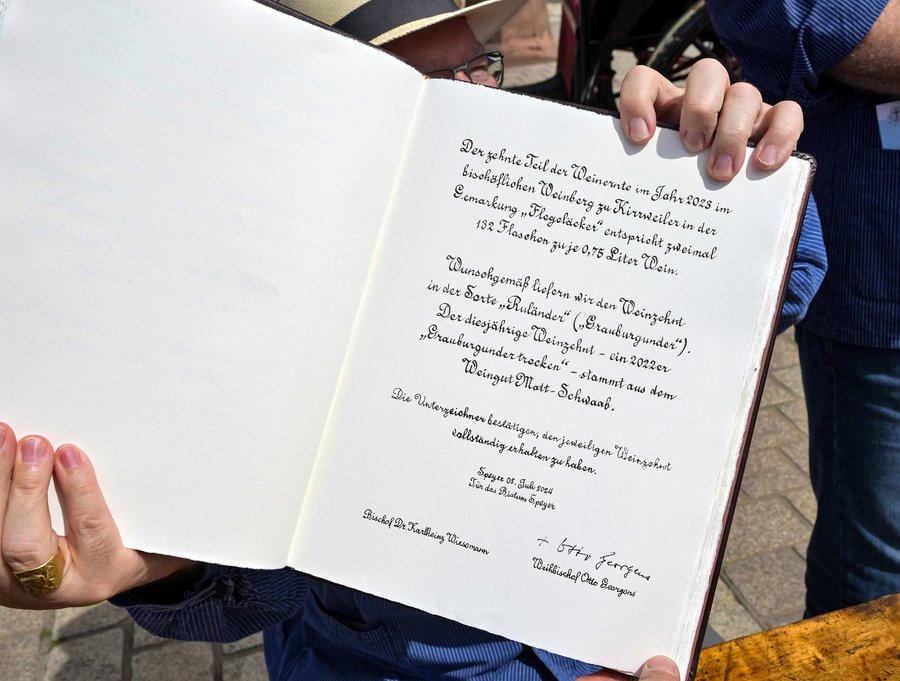 Der zehnte Teil der Weinernte im Jahr 2023 im
bischöflichen Weinberg zu Kirrweiler in der
Gemarkung „Flegeläcker“ entspricht zweimal
132 Flaschen zu je 0,75 Liter Wein.
Wunschgemäß liefern wir den Weinzehnt
in der Sorte „Ruländer“ („Grauburgunder“).
Der diesjährige Weinzehnt – ein 2022er
„Grauburgunder trocken“ – stammt aus dem
Weingut Matt-Schwaab.
Die Unterzeichner bestätigen, den jeweiligen Weinzehnt
vollständig erhalten zu haben.
Speyer 05. Juli 2024
Für das Bistum Speyer
+ Otto Georgens
Bischof Dr. Karlheinz Wiesemann
Weihbischof Otto Georgens